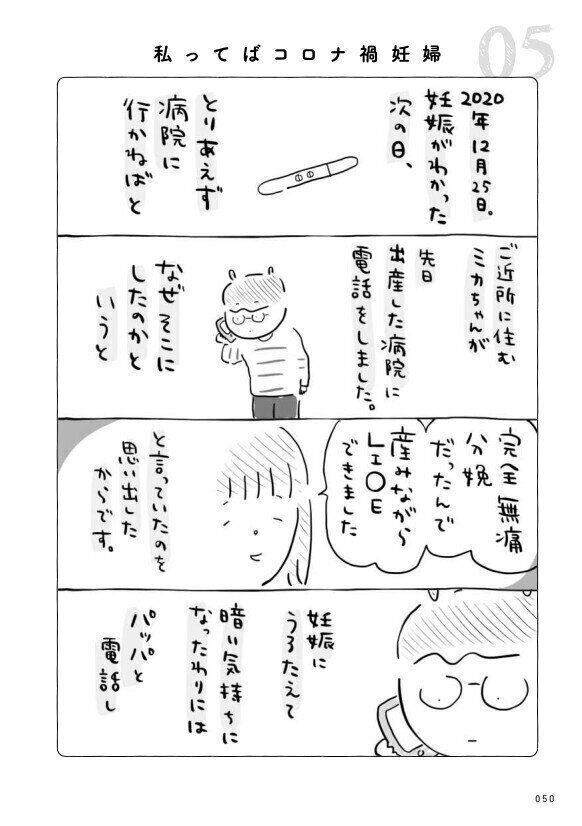 05
私ってばコロナ禍妊婦
2020年12月25日。
妊娠がわかった
次の日、
とりあえず
病院に
行かねばと
ご近所に住む
ミカちゃんが
先日
出産した病院に
電話をしました。
なぜそこに
したのかと
いうと
完全無痛
分娩
だったんで
産みながら
LI〇E
できました
と言っていたのを
思い出した
からです。
妊娠に
うろたえて
暗い気持ちに
なったわりには
パッパと
電話し
050